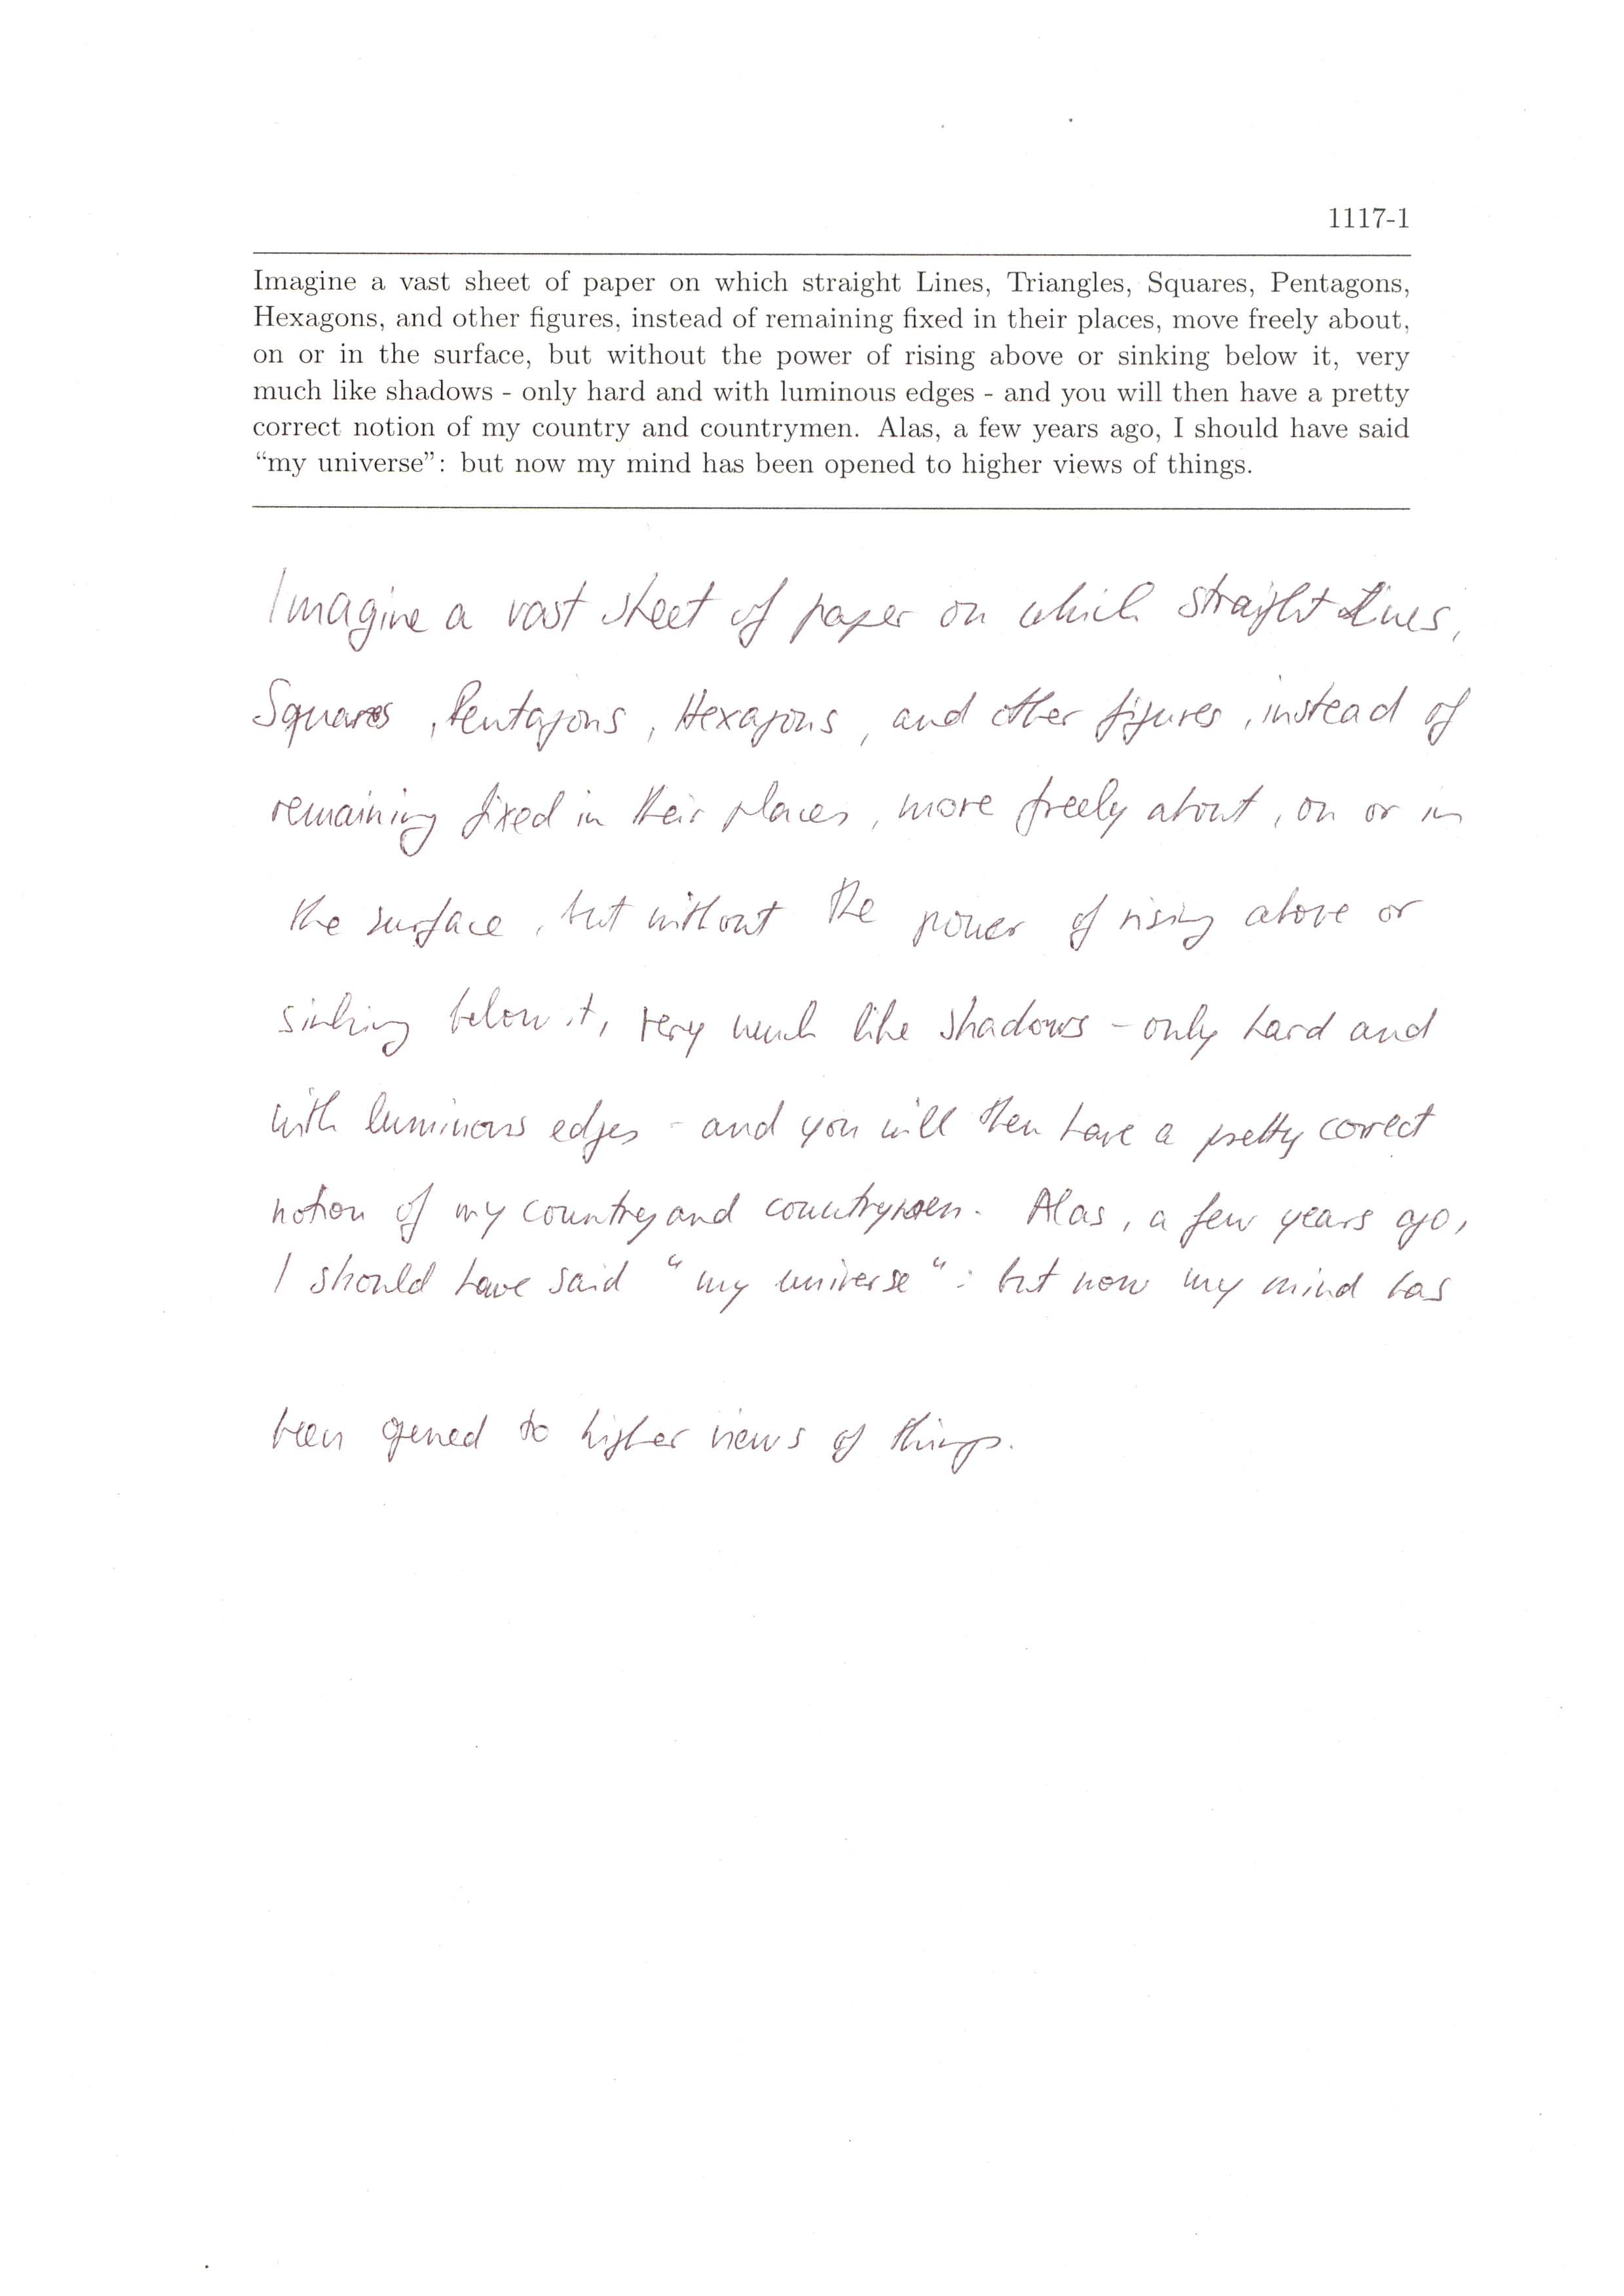 1117-1
Imagine a vast sheet of paper on which straight Lines, Triangles, Squares, Pentagons,
Hexagons, and other figures, instead of remaining fixed in their places, move freely about,
on or in the surface, but without the power of rising above or sinking below it, very
much like shadows - only hard and with luminous edges - and you will then have a pretty
correct notion of my country and countrymen. Alas, a few years ago, I should have said
“my universe”: but now my mind has been opened to higher views of things.
Imagine a vast sheet of paper on which straight Lines,
Squares, Pentagons, Hexagons, and other figures, instead of
remaining fixed in their places, move freely about, on or in
the surface, but without the power of rising above or
sinking below it, very much like shadows - only hard and
with luminous edges - and you will then have a pretty correct
notion of my country and countrymen. Alas, a few years ago,
I should have said “my universe“: but now my mind has
been opened to higher views of things.